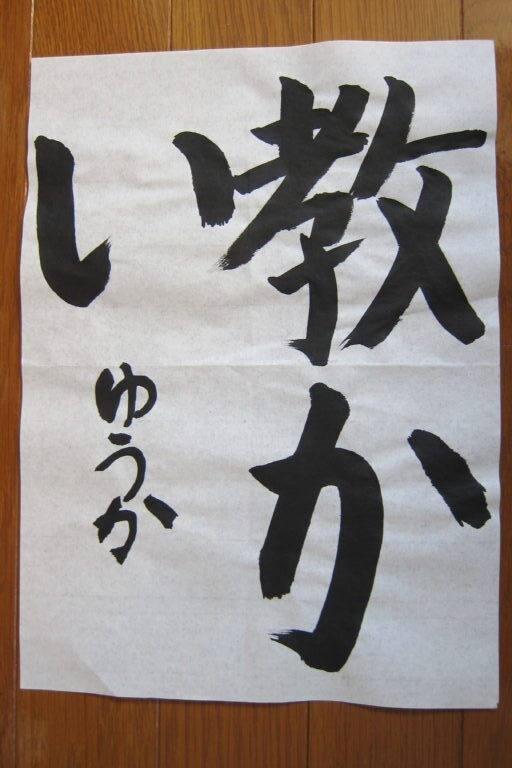 教か
い
ゆうか